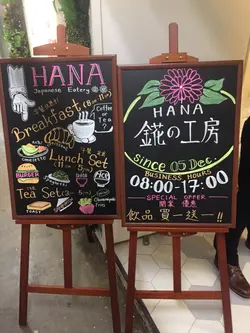 HANA
Japanese Eatery
Breakfast
(8am-11am)
Coffee
or
Tea
?
OMELETTE
Lunch Set
BURGER
RICE
Tea Set
TOAST
HANA
錵の工房
since 05 Dec.
BUSINESS HOURS
08:00-17:00
SPECIAL OFFER
開業 優惠
飲品 買一送一!!